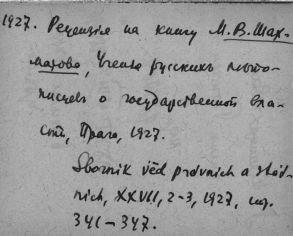 1927. Рецензія на книгу М.В. Шах-
матова, Ученія русскихъ лѣто-
писцевъ о государственной вла-
сти, Прага, 1927.
Sborník věd právních a stát-
ních, XXVII, 2-3, 1927, стр.
341-347.